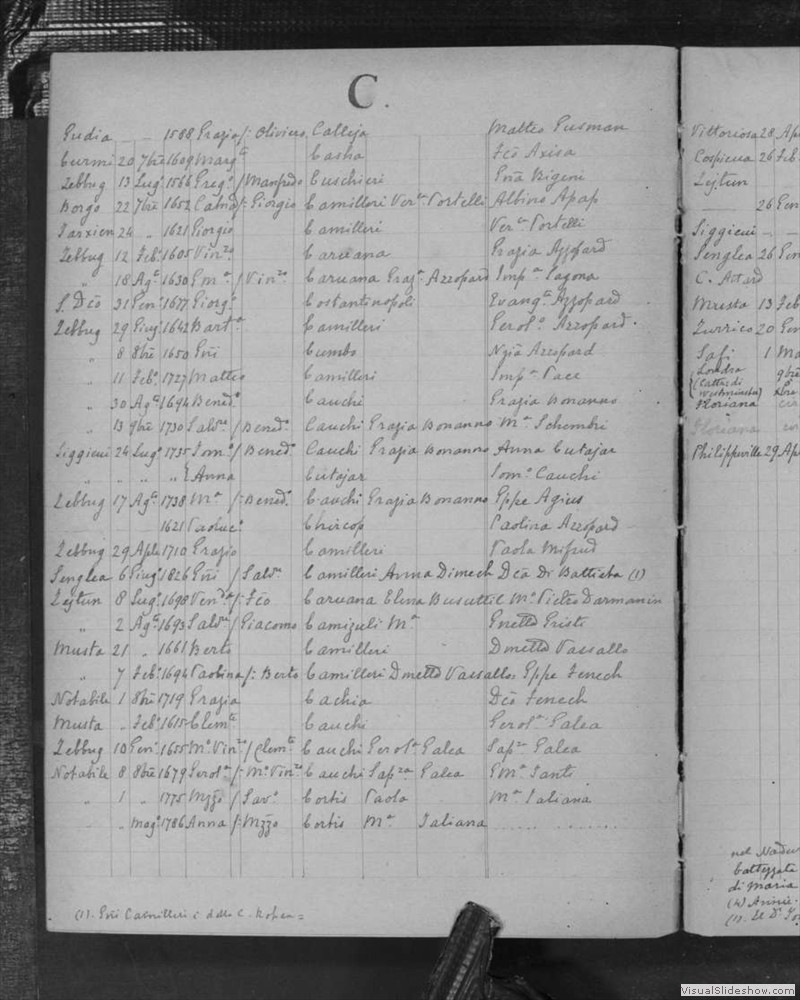 C.
Gudia _ _ 1588 Grazia /: Oliviero Calleja Matteo Gusman
Curmi 20 7bre 1609 Marg.ta Casha Fco Axisa
Zebbug 13 Lug.o 1566 Greg.o / Manfredo Cuschieri Gña Bigeni
Borgo 22 7bre 1652 Catna /: Giorgio Camilleri Ver.ca Portelli Albino Apap
Tarxien 24 " 1621 Giorgio Camilleri Ver.ca Portelli
Zebbug 12 Feb.o 1605 Vin.zo Caruana Grazia Azzopard
" 18 Ag.o 1630 Gm.a / Vin.zo Caruana Graz.a Azzopard Imp.a Pagona
S. Dco 31 Gen.o 1677 Giorg.o Costantinopoli Evang.ca Azzopard
Zebbug 29 Giug.o 1642 Bart.o Camilleri Gerol.a Azzopard.
" 8 8bre 1650 Gñi Cumbo Ngia Azzopard
" 11 Feb.o 1727 Matteo Camilleri Imp.a Pace
" 30 Ag.o 1694 Bened.o Cauchi Grazia Bonanno
" 13 9bre 1730 Salv.e / Bened.o Cauchi Grazia Bonanno M.a Schembri
Siggieui 24 Lug.o 1735 Tom.o / Bened.o Cauchi Grazia Bonanno Anna Cutajar
" " " " { Anna Cutajar Tom.o Cauchi
Zebbug 17 Ag.o 1738 M.a /: Bened.o Cauchi Grazia Bonanno Gppe Agius
1621 Paoluc.o Chircop Paolina Azzopard
Zebbug 29 Aple 1710 Grazio Camilleri Paola Mifsud
Senglea 6 Giug.o 1826 Gñi / Salv.e Camilleri Anna Dimech Dca Di Battista (1)
Zejtun 8 Lug.o 1698 Ven.da /: Fco Caruana Elena Busuttil M.o Pietro Darmanin
" 2 Ag.o 1693 Salv.e / Giacomo Camizuli M.a
Musta 21 " 1661 Berto Camilleri Dmetta Vassallo
" 7 Feb.o 1694 Paolina /: Berto Camilleri Dmetta Vassallo Gppe Fenech
Notabile 1 8bre 1719 Grazia Cachia Dco Fenech
Musta " Feb.o 1615 Clem.te Cauchi Gerol.a Galea
Zebbug 10 Gen.o 1655 M.o Vin.zo / Clem.te Cauchi Gerol.a Galea Sap.za Galea
Notabile 8 8bre 1679 Gerol.a /: M.o Vin.zo Cauchi Sap.za Galea Gm.a Santi
" 1 " 1775 Mzzo / Sav.o Cortis Paola M.a Taliana
" " mag.o 1786 Anna /: Mzzo Cortis M.a Taliana ..... .......
(1). Gñi Camilleri è detto C. Kohen =
Vittoriosa 28 Ap
Cospicua 26 Feb
Zejtun
26 Gen
Siggieui _ _
Senglea 26 Gen
C. Attard
Musta 13 Feb
Zurrico 20 Gen
Safi 1 Ma
Londra 9bre
(Catt. di
Westminster)
Floriana
Floriana
Philippeville 29 Ap
nel Nadur
battezzata
di Maria
(4) Annie.
(1). Il Dr.
VisualSlideshow.com